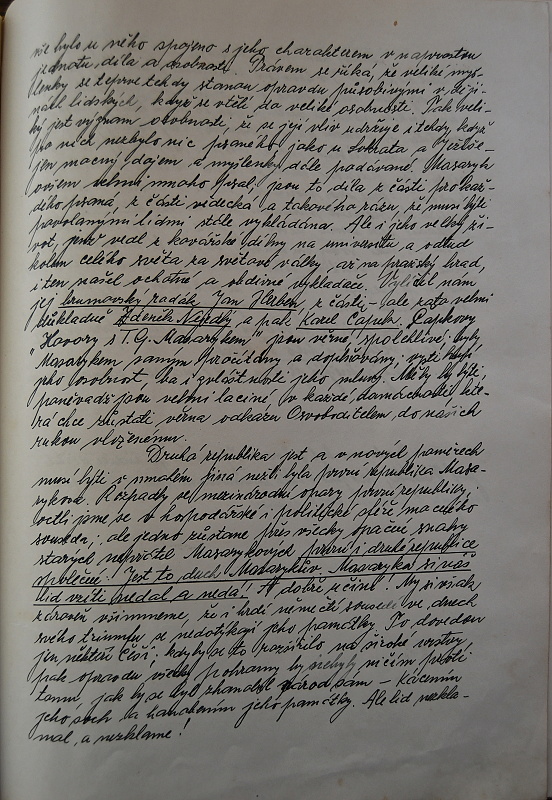 vše bylo u něho spojeno s jeho charakterem v naprostou
jednotu díla a osobnosti. Právem se říká, že veliké myš-
lenky se teprve tehdy stanou opravdu působivými v ději-
nách lidských, když se vtělí do veliké osobnosti. Tak veli-
ký jest význam osobnosti, že se její vliv udržuje i tehdy, když
po nich nezbylo nic psaného, jako u Sokrata a Ježíše -
jen mocný dojem a myšlenky dále podávané. Masaryk
ovšem velmi mnoho psal, jsou to díla z části pro kaž-
dého psaná, z části vědecká a takového rázu, že musí býti
povolanými lidmi stále vykládána. Ale i jeho velký ži-
vot, jenž vedl z kovářské dílny na universitu a odtud
kolem celého světa za světové války, až na pražský hrad,
i ten našel ochotné a obdivné vykladače. Vylíčil nám
jej brumovský rodák Jan Herben, z části - ale zato velmi
důkladně Zdeněk Nejedlý a pak Karel Čapek. Čapkovy
"Hovory s T. G. Masarykem" jsou věrné, spolehlivé, byly
Masarykem samým pročítány a doplňovány;
jeho osobnost, ba i zvláštnosti jeho mluvy. Měly by býti,
poněvadž jsou velmi laciné, v každé domácnosti, kte-
rá chce zůstati věrna odkazu Osvoboditelem do našich
rukou vloženému.
Druhá republika jest a v nových poměrech
musí býti v mnohém jiná nežli byla první republika Masa-
rykova. Rozpadly se mezinárodní opory první republiky,
octli jsme se v hospodářské i politické sféře mocného
souseda; ale jedno zůstane přes všecky opačné snahy
starých nepřátel Masarykových první i druhé republice
společné: Jest to duch Masarykův. Masaryka si náš
lid vzíti nedal a nedá! A dobře učiní. My si však
zároveň všimneme, že i hrdí němečtí sousedé ve dnech
svého triumfu se nedotýkají jeho památky. To dovedou
jen někteří Češi; kdyby se to rozšířilo na široké vrstvy,
pak opravdu všecky pohromy by nebyly ničím proti
tomu, jak by se byl zhanobil národ sám - kácením
jeho soch a hanobením jeho památky. Ale lid nezkla-
mal, a nezklame!